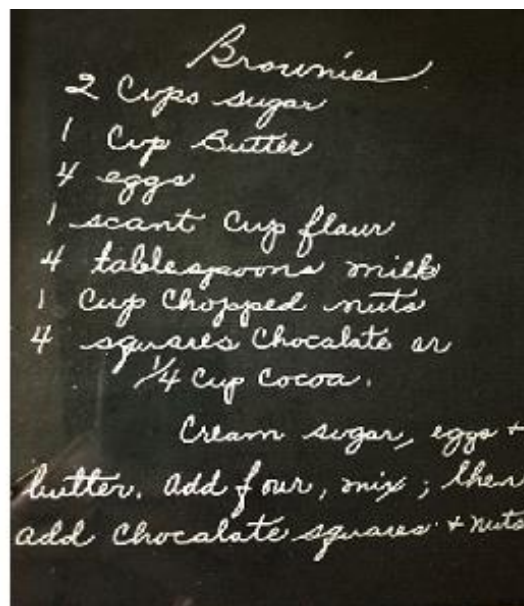 Brownies
2 Cups sugar
1 Cup Butter
4 eggs
1 scant Cup flour
4 tablespoons milk
1 Cup Chopped nuts
4 squares Chocalate or
1/4 Cup Cocoa.
Cream sugar, eggs +
butter. Add four, mix; then
add Chocalate squares + nuts